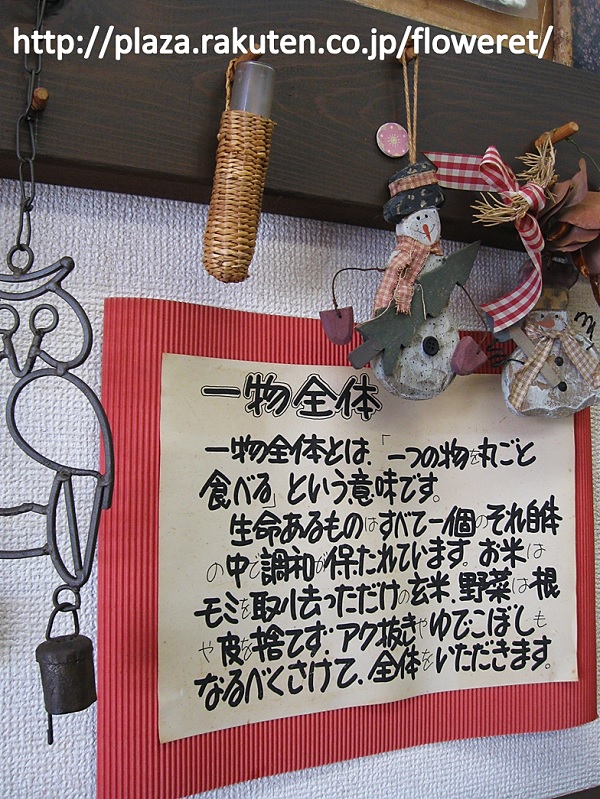 http://plaza.rakuten.co.jp/floweret/
一物全体
一物全体とは、「一つの物を丸ごと
食べる」という意味です。
生命あるものはすべて一個のそれ自体
の中で調和が保たれています。お米は
モミを取り去っただけの玄米、野菜は根
や皮を捨てず、アク抜きやゆでこぼしも
なるべくさけて、全体をいただきます。